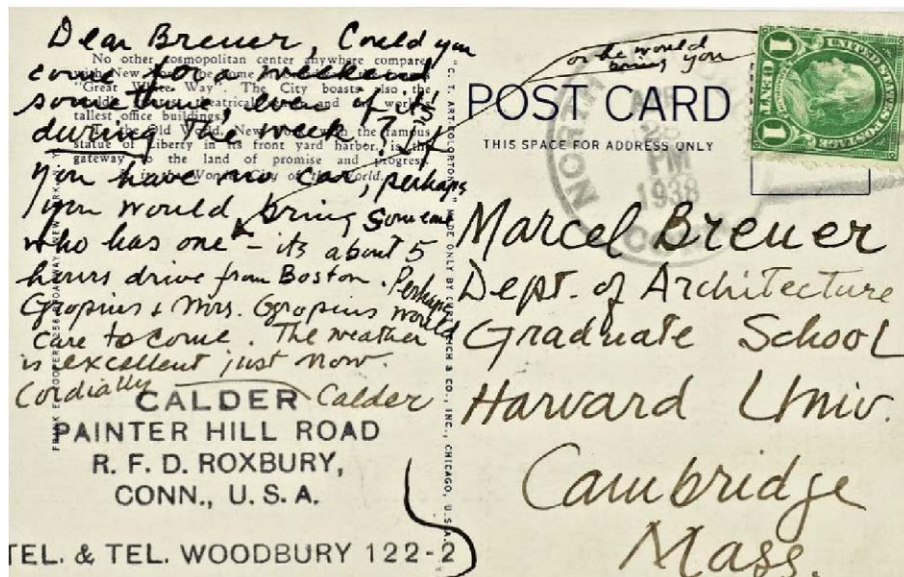 Dear Breuer, Could you
come for a weekend
sometime, even if it's
during the week? If
you have no car, perhaps
you would bring someone
who has one – its about 5
hours drive from Boston. Perhaps
Gropius & Mrs. Gropius would
care to come. The weather
is excellent just now.
Cordially Calder
or he would
bring you
No other cosmopolitan center anywhere compare
with New York
"Great White Way". The City boasts also the
tallest office buildings.
Old World, New York the famous
statue of Liberty in its front yard harbor, is the
gateway to the land of promise and progress.
Wonder City of the World.
CALDER
PAINTER HILL ROAD
R. F. D. ROXBURY,
CONN., U. S. A.
TEL. & TEL. WOODBURY 122-2
"C. T. ART-COLORTONE" MADE ONLY BY CURT TEICH & CO., INC., CHICAGO, U. S. A.
POST CARD
THIS SPACE FOR ADDRESS ONLY
NORTH
PM
1938
CONN
UNITED STATES POSTAGE
1 CENT 1
Marcel Breuer
Dept. of Architecture
Graduate School
Harvard Univ.
Cambridge
Mass.